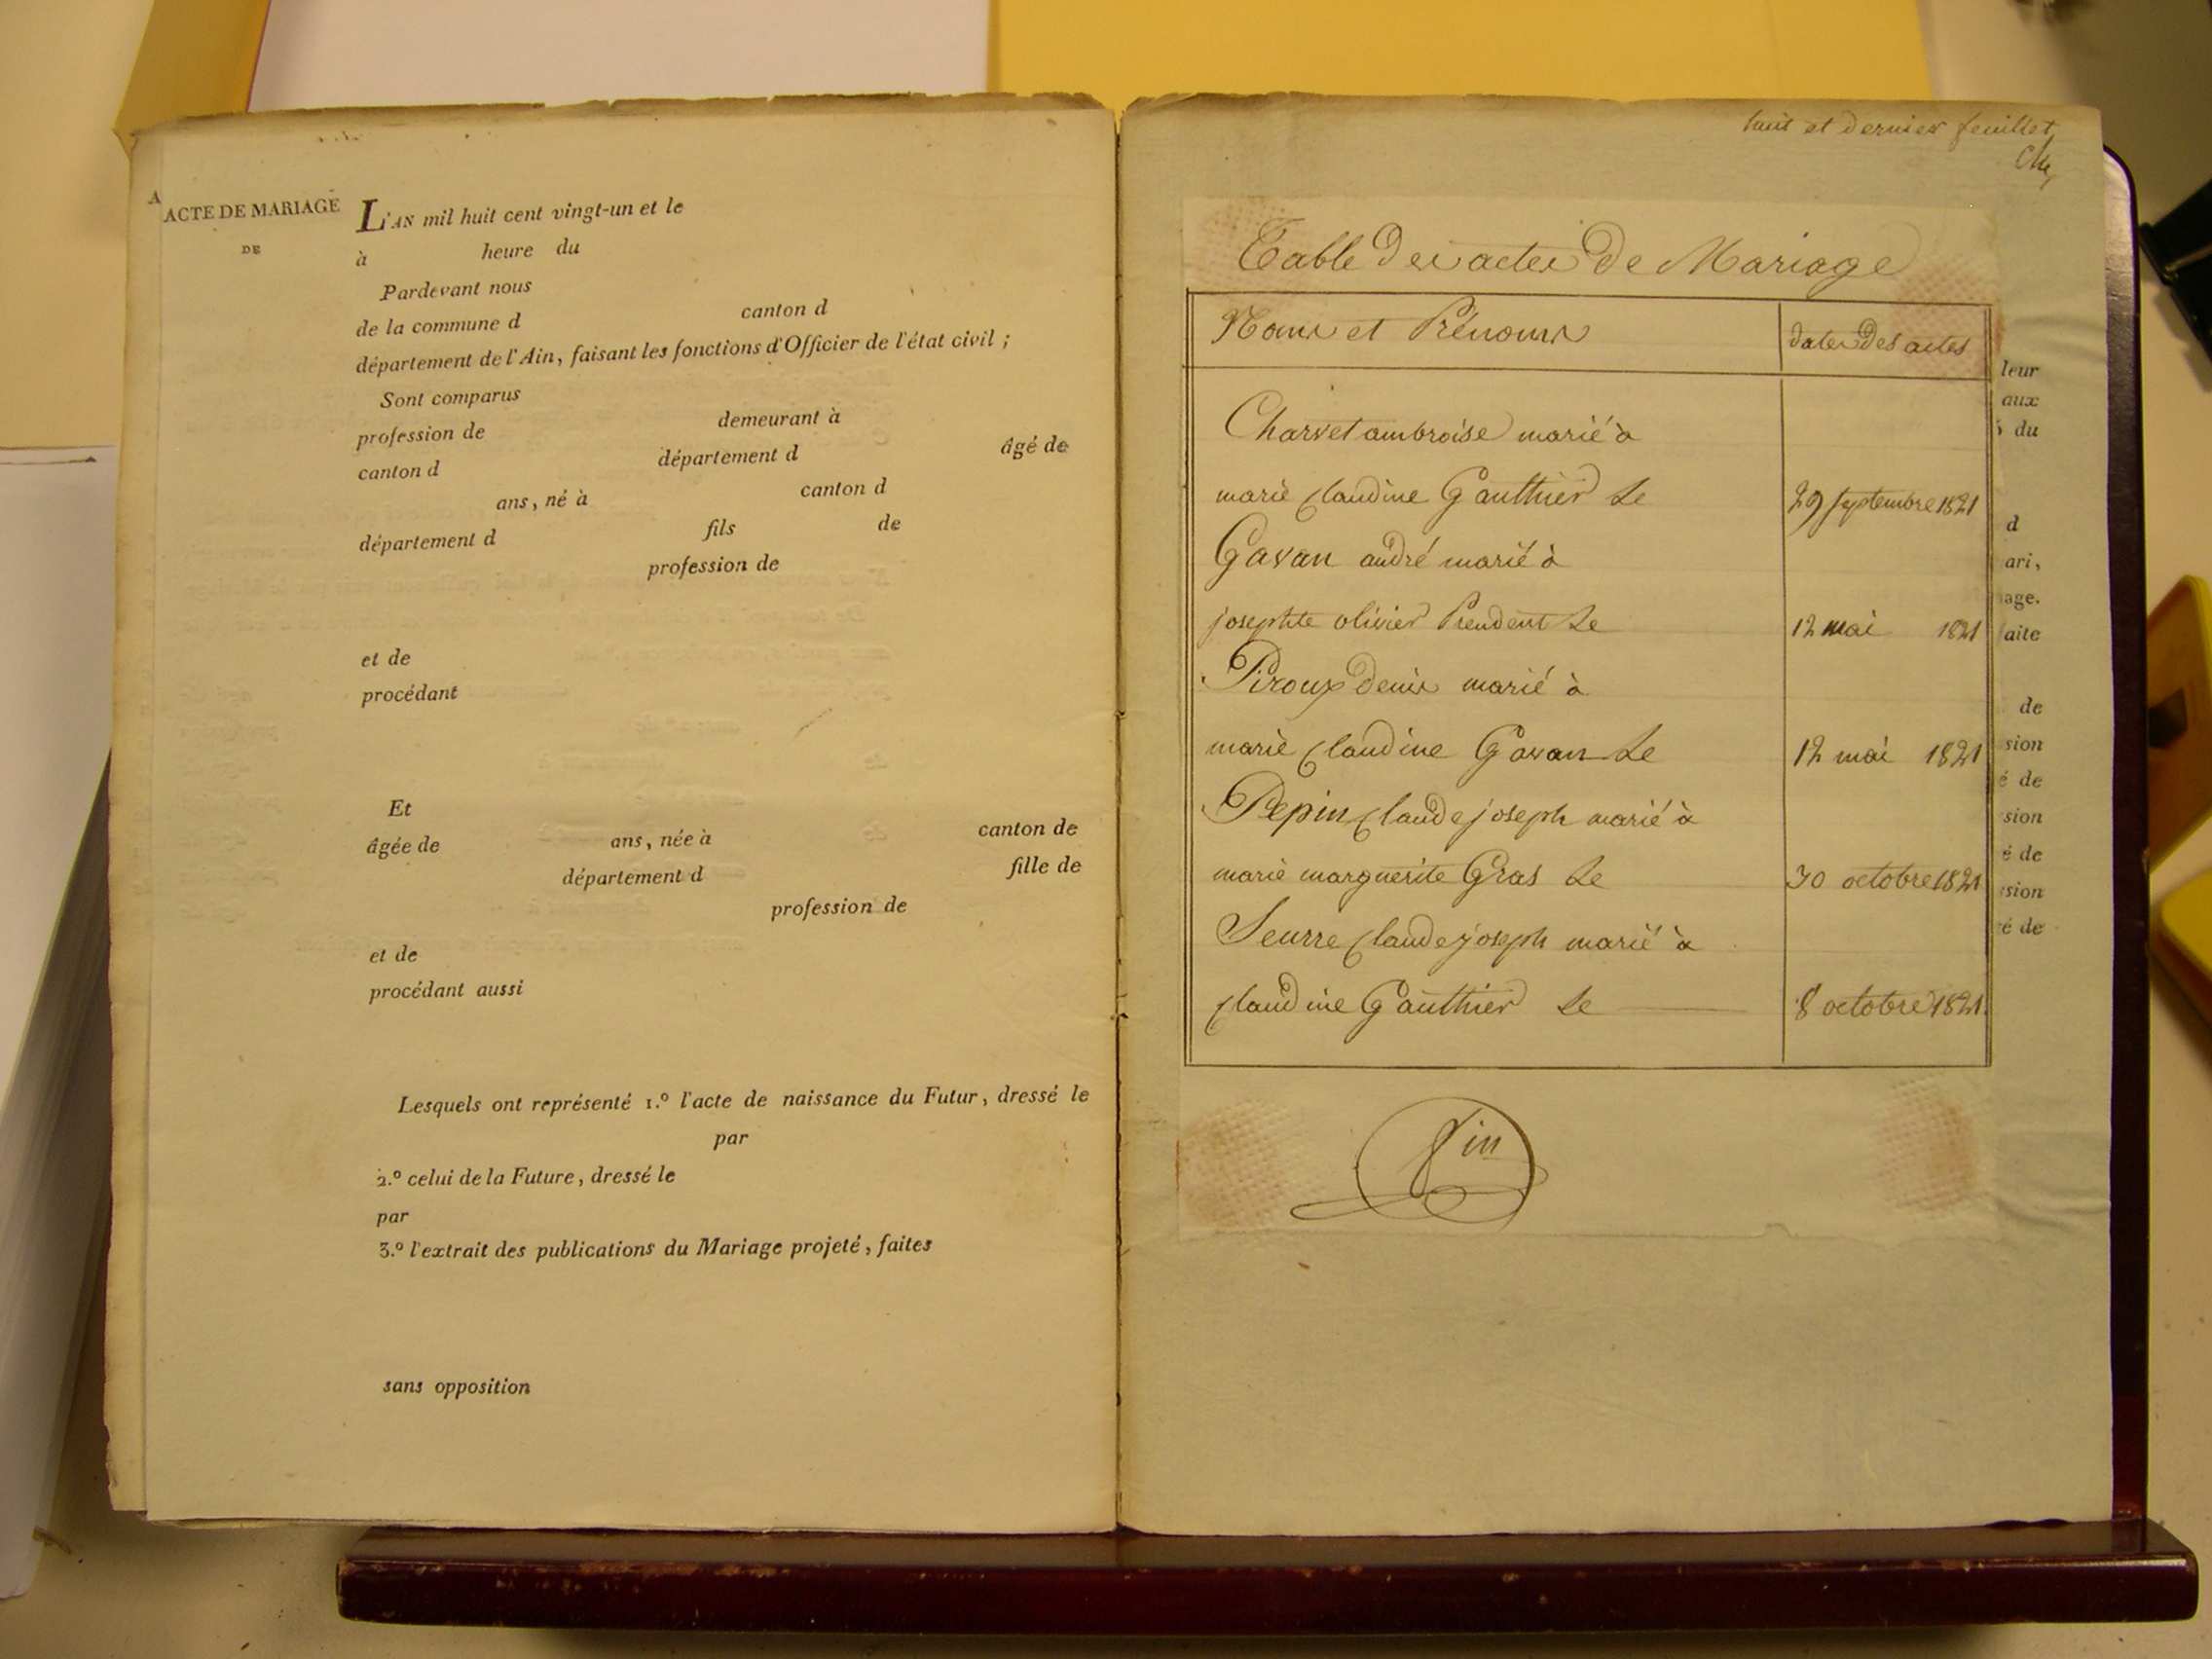 A
ACTE DE MARIAGE
DE
L'AN mil huit cent vingt-un et le
à heure du
Pardevant nous
de la commune d canton d
département de l'Ain, faisant les fonctions d'Officier de l'état civil ;
Sont comparus
profession de demeurant à
canton d département d âgé de
ans, né à canton d
département d fils de
profession de
et de
procédant
Et
âgée de ans, née à canton de
département d fille de
profession de
et de
procédant aussi
Lesquels ont représenté 1.º l'acte de naissance du Futur, dressé le
par
2.º celui de la Future, dressé le
par
3.º l'extrait des publications du Mariage projeté, faites
sans opposition
huit et dernier feuillet
Table des actes de Mariage
Noms et Prénoms dates des actes
Charvet ambroise marié à
marie Claudine Gauthier Le 29 septembre 1821
Gavan andré marié à
josephte olivier Prudent Le 12 mai 1821
Piroux denis marié à
marie Claudine Gavan Le 12 mai 1821
Pepin Claude joseph marié à
marie marguerite Gras Le 30 octobre 1821
Seurre Claude joseph marié à
Claudine Gauthier Le 8 octobre 1821
fin
leur
aux
du
d
ari,
age.
aite
de
sion
é de
sion
é de
sion
é de